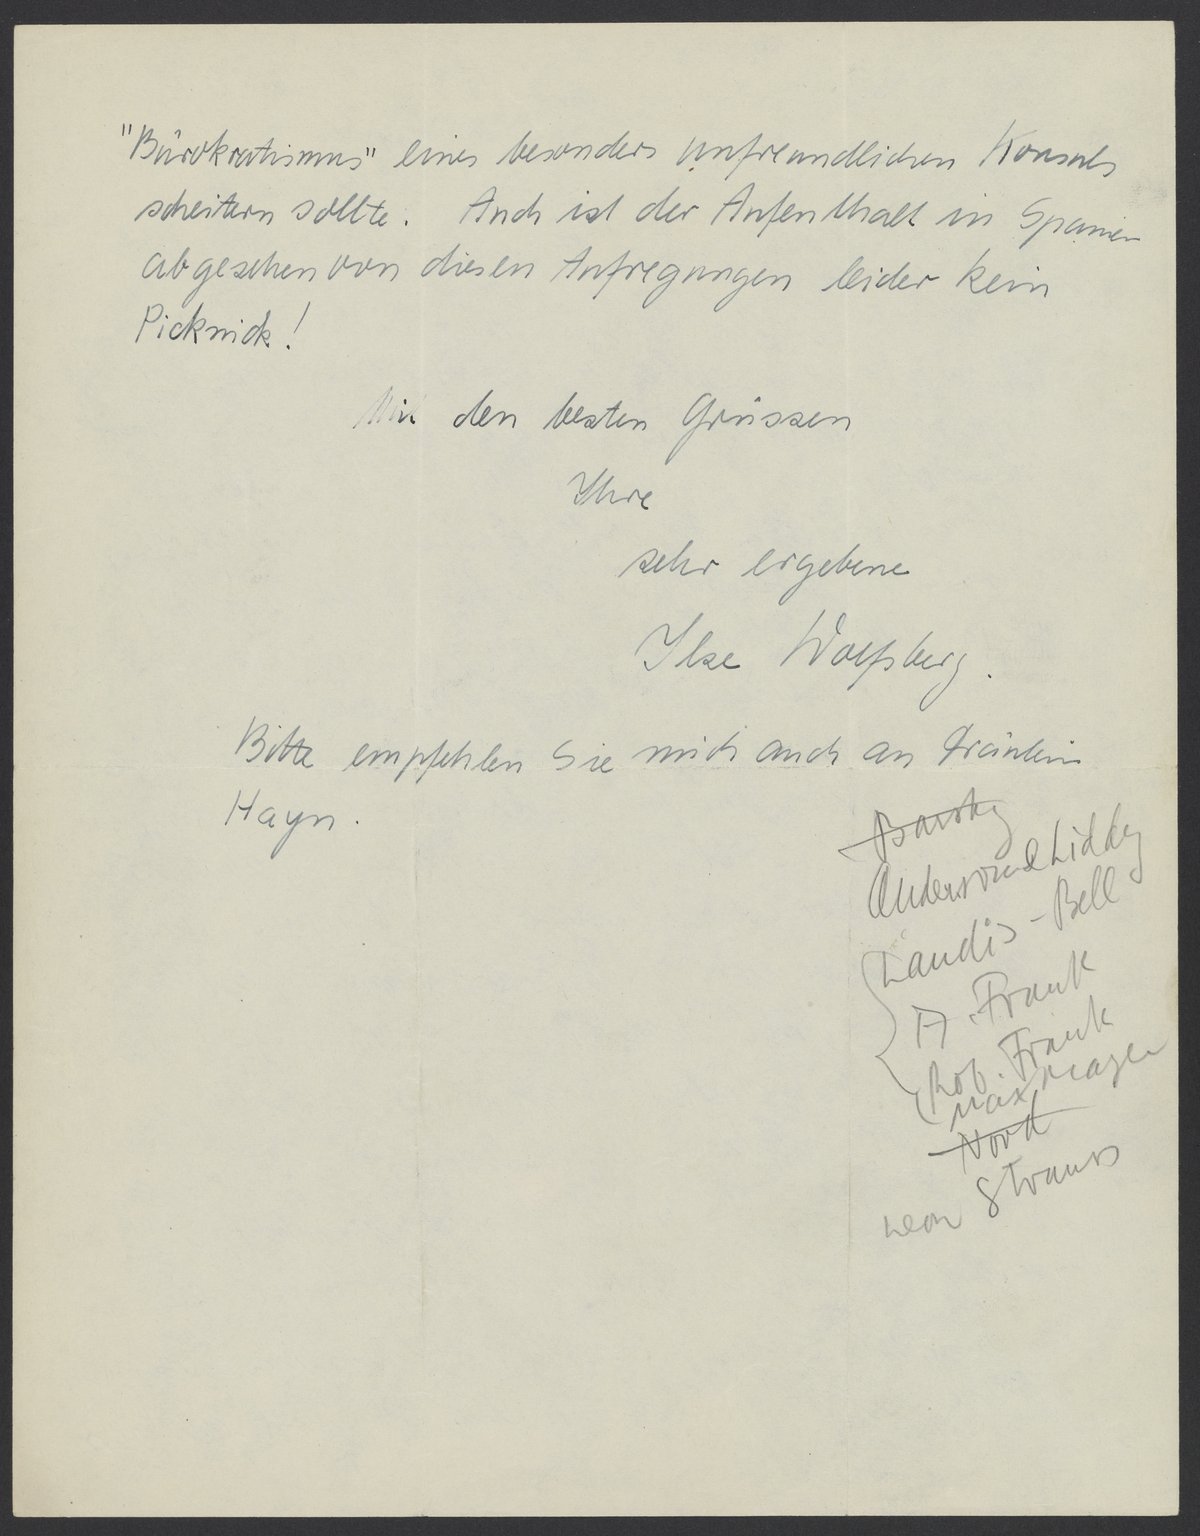 "Bürokratismus" eines besonders unfreundlichen Konsuls
scheitern sollte. Auch ist der Aufenthalt in Spanien
abgesehen von diesen Aufregungen leider kein
Picknick!
Mit den besten Grüssen
Ihre
sehr ergebene
Ilse Wolfsberg.
Bitte empfehlen Sie mich auch an Fräulein
Hayn.
Barsky
Landis - Bell
A. Frank
Rob. Frank
Max Mayer
Nord
Leon Strauss